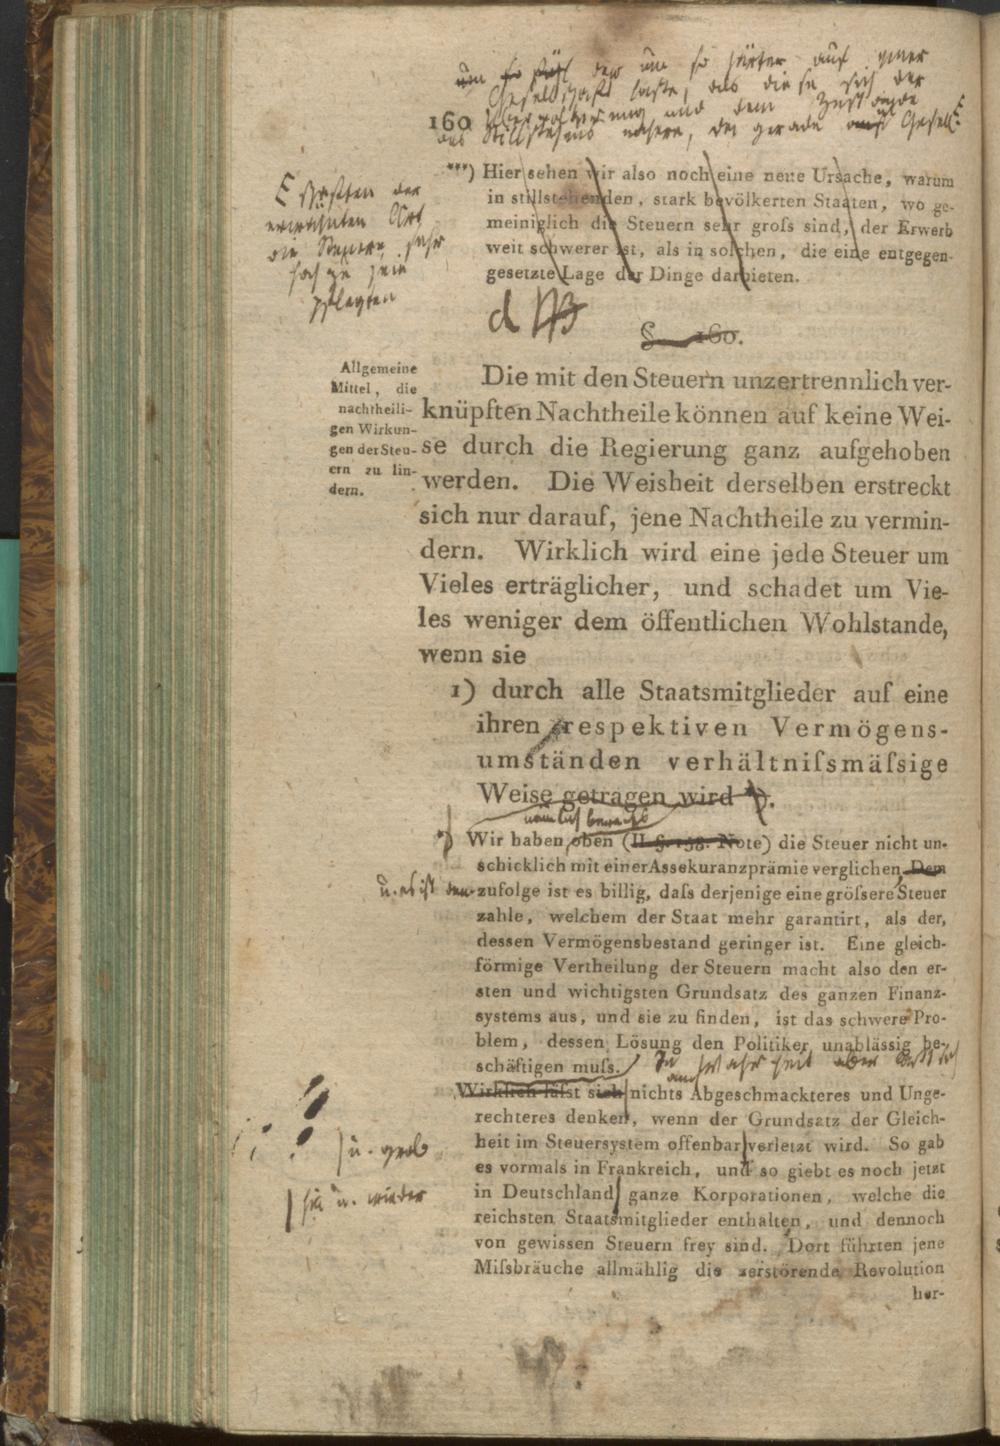 um so
um so härter auf einer
Gesellschaft laste, als diese sich der
und dem Zustande
160
des Stillstehens nähere, der gerade Gesell-
***) Hier sehen wir also noch eine neue Ursache, warum
in stillstehenden, stark bevölkerten Staaten, wo ge-
meiniglich die Steuern sehr groſs sind, der Erwerb
weit schwerer ist, als in solchen, die eine entgegen-
gesetzte Lage der Dinge darbieten.
der
erwähnten Art
die Steuern sehr
hoch zu sein
pflegten
§ 160.
Allgemeine
Mittel, die
nachtheili-
gen Wirkun-
gen der Steu-
ern zu lin-
dern.
Die mit den Steuern unzertrennlich ver-
knüpften Nachtheile können auf keine Wei-
se durch die Regierung ganz aufgehoben
werden. Die Weisheit derselben erstreckt
sich nur darauf, jene Nachtheile zu vermin-
dern. Wirklich wird eine jede Steuer um
Vieles erträglicher, und schadet um Vie-
les weniger dem öffentlichen Wohlstande,
wenn sie
1) durch alle Staatsmitglieder auf eine
ihren respektiven Vermögens-
umständen verhältniſsmäſsige
Weise getragen wird *).
nämlich bereits
*) Wir haben oben (II. §. 158. Note) die Steuer nicht un-
schicklich mit einer Assekuranzprämie verglichen. Dem
u. es ist dem-
zufolge ist es billig, daſs derjenige eine gröſsere Steuer
zahle, welchem der Staat mehr garantirt, als der,
dessen Vermögensbestand geringer ist. Eine gleich-
förmige Vertheilung der Steuern macht also den er-
sten und wichtigsten Grundsatz des ganzen Finanz-
systems aus, und sie zu finden, ist das schwere Pro-
blem, dessen Lösung den Politiker unablässig be-
schäftigen muſs.
In Wahrheit aber läſst sich
auch
Wirklich läſst sich nichts Abgeschmackteres und Unge-
rechteres denken, wenn der Grundsatz der Gleich-
heit im Steuersystem offenbar verletzt wird. So gab
u. grob
es vormals in Frankreich, und so giebt es noch jetzt
in Deutschland ganze Korporationen, welche die
hin u. wieder
reichsten Staatsmitglieder enthalten, und dennoch
von gewissen Steuern frey sind. Dort führten jene
Miſsbräuche allmählig die zerstörende Revolution
her-